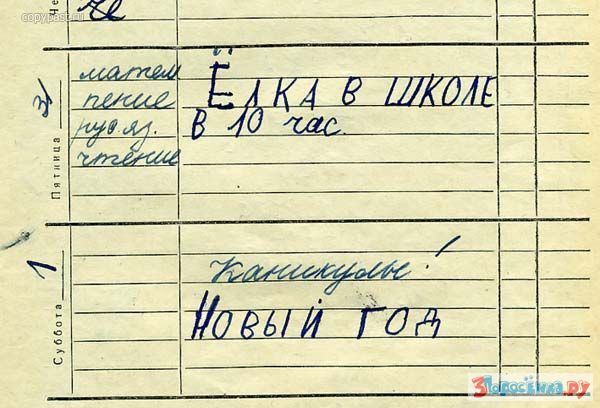 copypast.ru
Че
Пятница 31
матем
пение
рус яз.
чтение
ЁЛКА В ШКОЛЕ
В 10 час.
Суббота 1
Каникулы!
НОВЫЙ ГОД
3Поросёнка.РУ